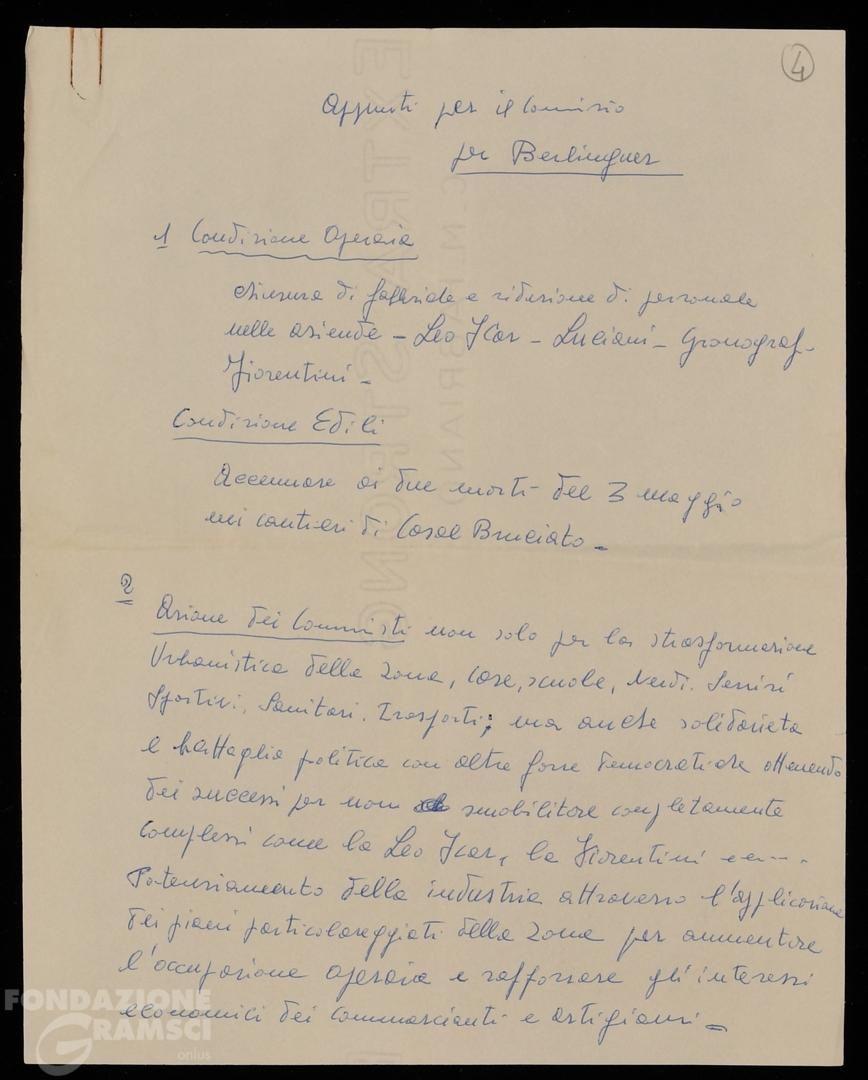 4
Appunti per il Comizio
per Berlinguer
1 Condizione Operaia
chiusura di fabbriche e riduzione di personale
nelle aziende - Leo Icar - Luciani - Gronograf -
Fiorentini -
Condizione Edili
Accennare ai due morti del 3 maggio
nei cantieri di Casal Bruciato -
2
Azione dei Comunisti non solo per la trasformazione
Urbanistica della zona, case, scuole, Verdi. Servizi
Sportivi, Sanitari. Trasporti; ma anche solidarietà
e battaglia politica con altre forze democratiche ottenendo
dei successi per non smobilitare completamente
complessi come la Leo Icar, la Fiorentini ecc - - .
Potenziamento della industria attraverso l'applicazione
dei piani particolareggiati della zona per aumentare
l'occupazione operaia e rafforzare gli interessi
economici dei commercianti e artigiani -
FONDAZIONE
GRAMSCI
onlus